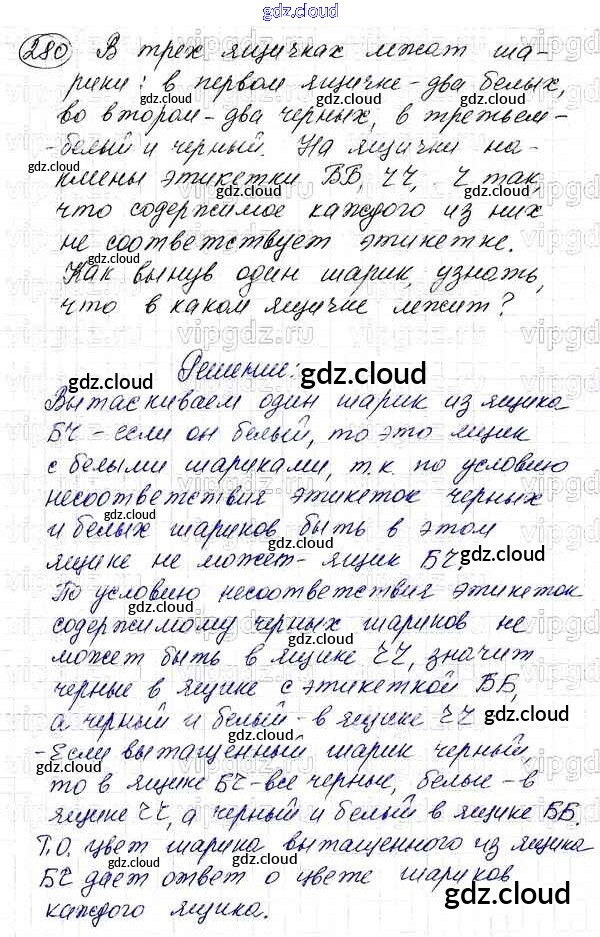 gdz.cloud
280 В трех ящичках лежат ша-
рики: в первом ящичке - два белых,
во втором - два черных, в третьем -
- белый и черный. На ящички на-
клеены этикетки ББ, ЧЧ, - Ч так,
что содержимое каждого из них
не соответствует этикетке.
Как вынув один шарик, узнать,
что в каком ящичке лежит?
Решение:
Вытаскиваем один шарик из ящика
БЧ - если он белый, то это ящик
с белыми шариками, т.к. по условию
несоответствия этикеток черных
и белых шариков быть в этом
ящике не может - ящик БЧ.
По условию несоответствия этикеток
содержимому черных шариков не
может быть в ящике ЧЧ, значит
черные в ящике с этикеткой ББ,
а черный и белый - в ящике ЧЧ
- Если вытащенный шарик черный,
то в ящике БЧ - все черные, белые - в
ящике ЧЧ, а черный и белый в ящике ББ.
Т.О. цвет шарика вытащенного из ящика
БЧ дает ответ о цвете шариков
каждого ящика.